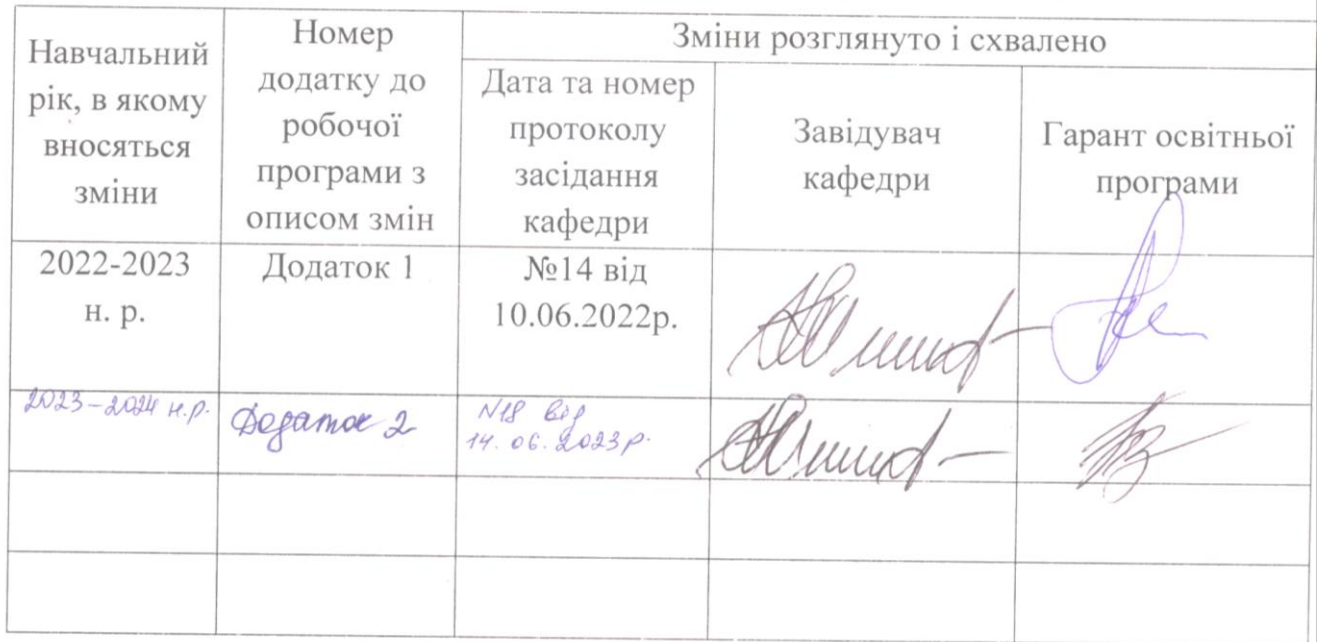 Навчальний
рік, в якому
вносяться
зміни
Номер
додатку до
робочої
програми з
описом змін
Зміни розглянуто і схвалено
Дата та номер
протоколу
засідання
кафедри
Завідувач
кафедри
Гарант освітньої
програми
2022-2023
н. р.
Додаток 1
№14 від
10.06.2022р.
2023-2024 н.р.
Додаток 2
N18 від
14.06.2023р.